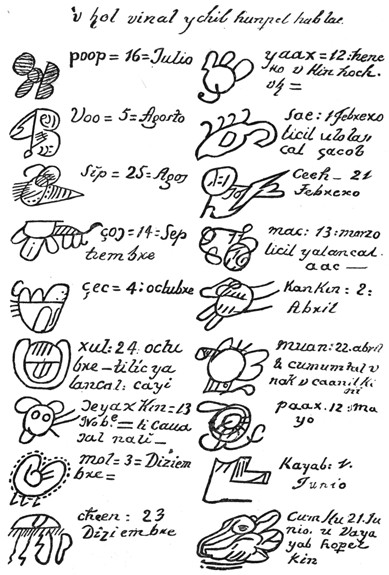 v hol vinal ychil hunpel hab lae
poop = 16 = Julio
Voo = 5 = Agosto
Sip = 25 = Agos
çoj = 14 = Sep
tiembre
çec = 4: octubre
xul: 24. octu
bre - tilic ya
lancal: cayi
Jeyax Kin = 13
Nobe = licaua
jal nali -
mol = 3 = Diziem
bre =
cheen: 23
Diziembre
yaax = 12: hene
ro v kin hoch.
Sac: 1 febrero
licil u lolan
cal çacob
Ceeh - 21
Febrero
mac: 13: marzo
licil yalancal.
aac —
KanKin: 2:
Abril
muan: 22. abril
& cumumtal v
nak v caanil ki
ni
paax. 12: ma
yo
Kayab: 1.
Junio
Cum Ku 21. Ju
nio. u Vaya
yab hopel
Kin